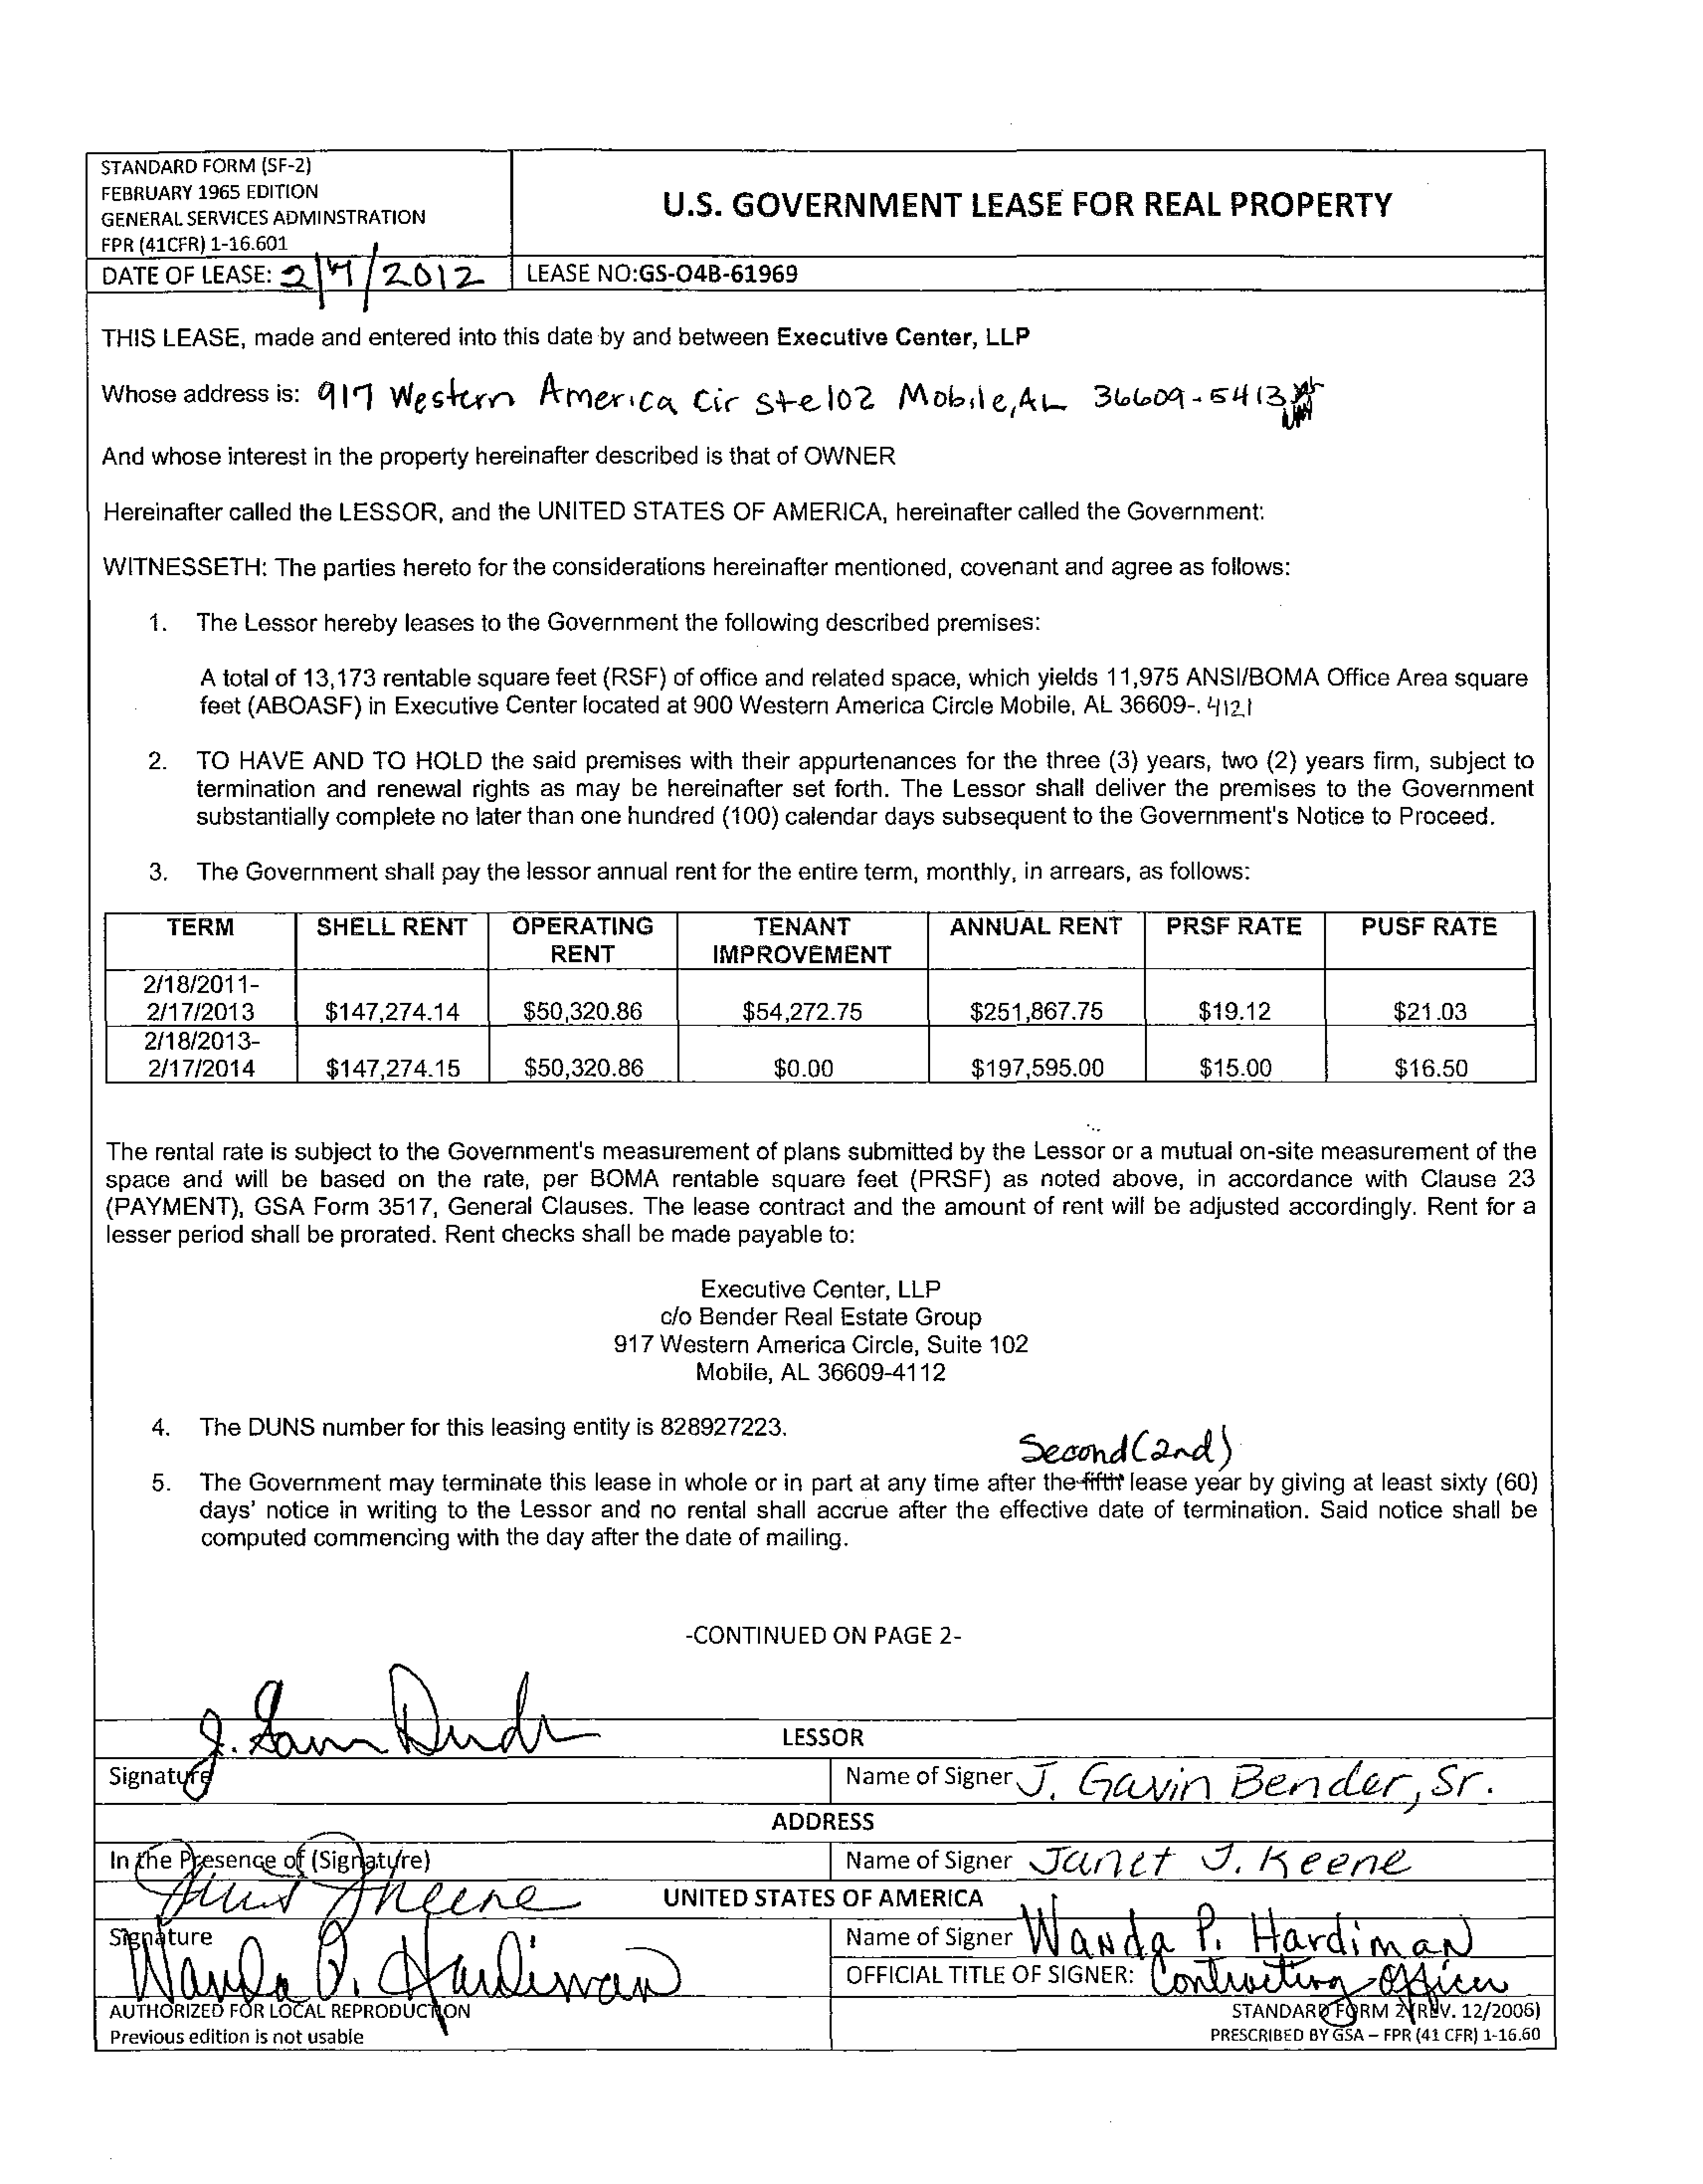 STANDARD FORM (SF-2)
FEBRUARY 1965 EDITION
GENERAL SERVICES ADMINSTRATION
FPR (41CFR) 1-16.601
U.S. GOVERNMENT LEASE FOR REAL PROPERTY
DATE OF LEASE: 2/4/2012
LEASE NO:GS-O4B-61969
THIS LEASE, made and entered into this date by and between Executive Center, LLP
Whose address is: 917 Western America Cir Ste 102 Mobile, AL 36609-5413
And whose interest in the property hereinafter described is that of OWNER
Hereinafter called the LESSOR, and the UNITED STATES OF AMERICA, hereinafter called the Government:
WITNESSETH: The parties hereto for the considerations hereinafter mentioned, covenant and agree as follows:
1. The Lessor hereby leases to the Government the following described premises:
A total of 13,173 rentable square feet (RSF) of office and related space, which yields 11,975 ANSI/BOMA Office Area square
feet (ABOASF) in Executive Center located at 900 Western America Circle Mobile, AL 36609-. 4121
2. TO HAVE AND TO HOLD the said premises with their appurtenances for the three (3) years, two (2) years firm, subject to
termination and renewal rights as may be hereinafter set forth. The Lessor shall deliver the premises to the Government
substantially complete no later than one hundred (100) calendar days subsequent to the Government's Notice to Proceed.
3. The Government shall pay the lessor annual rent for the entire term, monthly, in arrears, as follows:
TERM SHELL RENT OPERATING RENT TENANT IMPROVEMENT ANNUAL RENT PRSF RATE PUSF RATE
2/18/2011-
2/17/2013 $147,274.14 $50,320.86 $54,272.75 $251,867.75 $19.12 $21.03
2/18/2013-
2/17/2014 $147,274.15 $50,320.86 $0.00 $197,595.00 $15.00 $16.50
The rental rate is subject to the Government's measurement of plans submitted by the Lessor or a mutual on-site measurement of the
space and will be based on the rate, per BOMA rentable square feet (PRSF) as noted above, in accordance with Clause 23
(PAYMENT), GSA Form 3517, General Clauses. The lease contract and the amount of rent will be adjusted accordingly. Rent for a
lesser period shall be prorated. Rent checks shall be made payable to:
Executive Center, LLP
c/o Bender Real Estate Group
917 Western America Circle, Suite 102
Mobile, AL 36609-4112
4. The DUNS number for this leasing entity is 828927223.
Second (2nd)
5. The Government may terminate this lease in whole or in part at any time after the fifth lease year by giving at least sixty (60)
days' notice in writing to the Lessor and no rental shall accrue after the effective date of termination. Said notice shall be
computed commencing with the day after the date of mailing.
-CONTINUED ON PAGE 2-
LESSOR
Signature
Name of Signer J. Gavin Bender, Sr.
ADDRESS
In the Presence of (Signature)
Name of Signer Janet J. Keene
UNITED STATES OF AMERICA
Signature Wanda P. Hardiman
Name of Signer Wanda P. Hardiman
OFFICIAL TITLE OF SIGNER: Contracting Officer
AUTHORIZED FOR LOCAL REPRODUCTION
Previous edition is not usable
STANDARD FORM 2 (REV. 12/2006)
PRESCRIBED BY GSA – FPR (41 CFR) 1-16.60